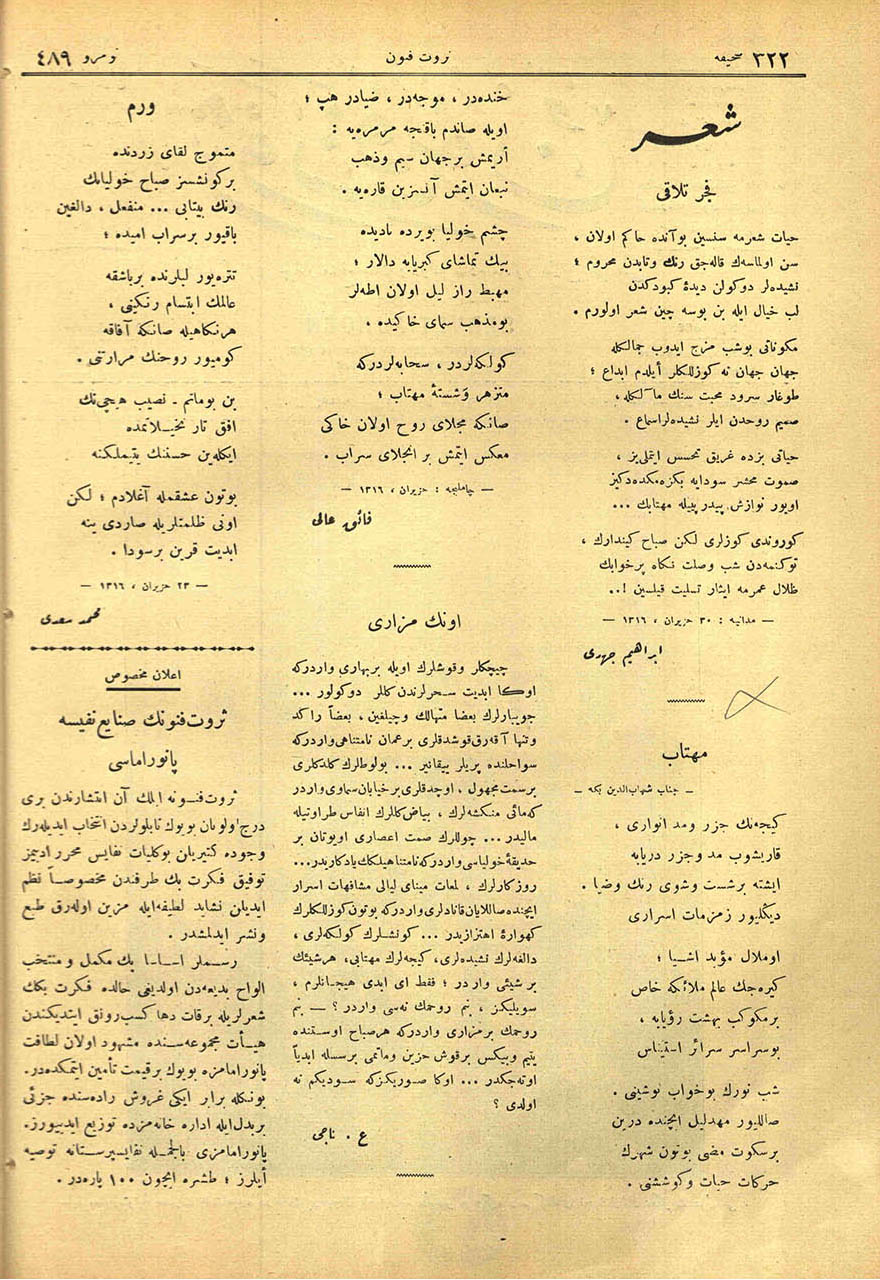 ٣٢٢ صحیفه
ثروت فنون
نومرو ٤٨٩
شعر
فجر تلاقی
حیات شعرمه سنسین بوآنده حاکم اولان ،
سن اولماسه‌ك قاله‌جق رنك وتابدن محروم ؛
نشیده‌لر دوکولن دیدۀ کبودکدن
لب خیال ایله بن بوسه چین شعر اولورم .
مکوناتی بوشب مزج ایدوب جمالکله
جهان جهان نه کوزللکلر أیلدم ابداع ؛
طوغار سرود محبت سنك مآلکله ،
صمیم روحدن ایلر نشیده‌لر اسماع .
حیاتی بزده غریق تحسس ایتملی‌یز ،
صموت محشر سودایه بکزه‌مکده‌دکیز
اویور نوازش پیدرپیله مهتابك ...
کوروندی کوزلری لکن صباح کیندارك ،
توکنمه‌دن شب وصلت نکاه پرخوابك
ظلال عمرمه ایثار تسلیت قیلسین !..
— مدانیه : ٣٠ حزیران ، ١٣١٦ —
ابراهیم جهدی
مهتاب
— جناب شهاب‌الدین بکه —
کیجه‌نك جزر ومد انواری ،
قاریشوب مد وجزر دریایه
ایشته برشست وشوی رنك وضیا .
دیکلیور زمزمات اسراری
اوملال مؤبد اشیا ؛
کیره‌جك عالم ملائکه خاص
برمکوکب بهشت رؤیایه ،
بوسراسر سرائر استیناس
شب نورك بوخواب نوشینی .
صاللیور مهدلیل ایچنده درین
برسکوت مضی بوتون شهرك
حرکات حیات وکوششنی .
خنده‌در ، موجه‌در ، ضیادر هپ ؛
اویله صاندم باقنجه مرمره‌یه :
أریمش برجهان سیم وذهب
نبعان ایتمش آنسزین قاره‌یه .
چشم خولیا بویرده نادیده
بیك تماشای کبریایه دالار ؛
مهبط راز لیل اولان اطه‌لر
بومذهب سمای خاکیده ،
کولکه‌لردر ، سحابه‌لردرکه
متزهر وشستۀ مهتاب ؛
صانکه مجلای روح اولان خاکی
معکس ایتمش بر انجلای سراب .
— چاملیجه : حزیران ، ١٣١٦ —
فائق عالی
اونك مزاری
چیچکلر وقوشلرك اویله بربهاری واردرکه
اوکا ابدیت سحرلرندن کللر دوکولور ...
جویبارلرك بعضا متهالك وچیلغین ، بعضاً راکد
وتنها آقه‌رق قوشدقلری برعمان نامتناهی واردرکه
سواحلنده پریلر ییقانیر ... بولوطلرك کلدکلری
برسمت مجهول ، اوچدقلری برخیابان سماوی واردر
که مائی منکشه‌لرك ، بیاض کللرك انفاس طراوتیله
مالیدر ... چوللرك صمت اعصاری اویوتان بر
حدیقۀ خولیاسی واردرکه نامتناهیلکك یادکاریدر...
روزکارلرك ، لمعات مینای لیالی مشافهات اسرار
ایچنده صاللایان قانادلری واردرکه بوتون کوزللکلرك
کهوارۀ اهتزازیدر ... کونشلرك کولکه‌لری ،
دالغه‌لرك نشیده‌لری ، کیجه‌لرك مهتابی ، هرشیئك
بر شیئی واردر ؛ فقط ای ابدی هیجانلرم ،
سویلیکز ، بنم روحمك نه‌سی واردر ؟ — بنم
روحمك برمزاری واردرکه هرصباح اوستنده
یتیم وبیکس برقوش حزین وماتمی برسسله ابدیاً
اوته‌جکدر ... اوکا صوریکزکه سودیکم نه
اولدی ؟
ع . ناجی
ورم
متموج لقای زردنده
برکونشسز صباح خولیانك
رنك بیتابی ... منفعل ، دالغین
باقیور برسراب امیده ؛
تتره‌یور لبلرنده برباشقه
عالمك ابتسام رنکینی ،
هرنکاهیله صانکه آفاقه
کومیور روحنك مرارتنی .
بن بوماتم ـ نصیب هیچی‌نك
افق تار تخیلاتمده
ایکله‌ین حسنك یتیملکنه
بوتون عشقمله آغلادم ؛ لکن
اونی ظلمتلریله صاردی ینه
ابدیت قرین برسودا .
— ٢٣ حزیران ، ١٣١٦ —
محمد سعدی
اعلان مخصوص
ثروت‌فنونك صنایع نفیسه
پانوراماسی
ثروت‌فنونه ایلك آن انتشارندن بری
درج اولونان بویوك تابلولردن انتخاب ایدیله‌رك
وجوده کتیریلن بوکلیات نفایس محرر ادیبمز
توفیق فکرت بك طرفندن مخصوصاً نظم
ایدیلن نشاید لطیفه‌ایله مزین اوله‌رق طبع
ونشر ایدلمشدر .
رسملر اساساً پك مکمل ومنتخب
الواح بدیعه‌دن اولدیغی حالده فکرت بکك
شعرلریله برقات دها کسب رونق ایتدیکندن
هیأت مجموعه‌سنده مشهود اولان لطافت
پانورامامزه بویوك برقیمت تأمین ایتمکده‌در.
بونکله برابر ایکی غروش راده‌سنده جزئی
بربدل‌ایله اداره خانه‌مزده توزیع ایدییورز.
پانورامامزی بالجمله نفایسپرستانه توصیه
أیلرز ؛ طشره ایچون ١٠٠ پاره‌در .